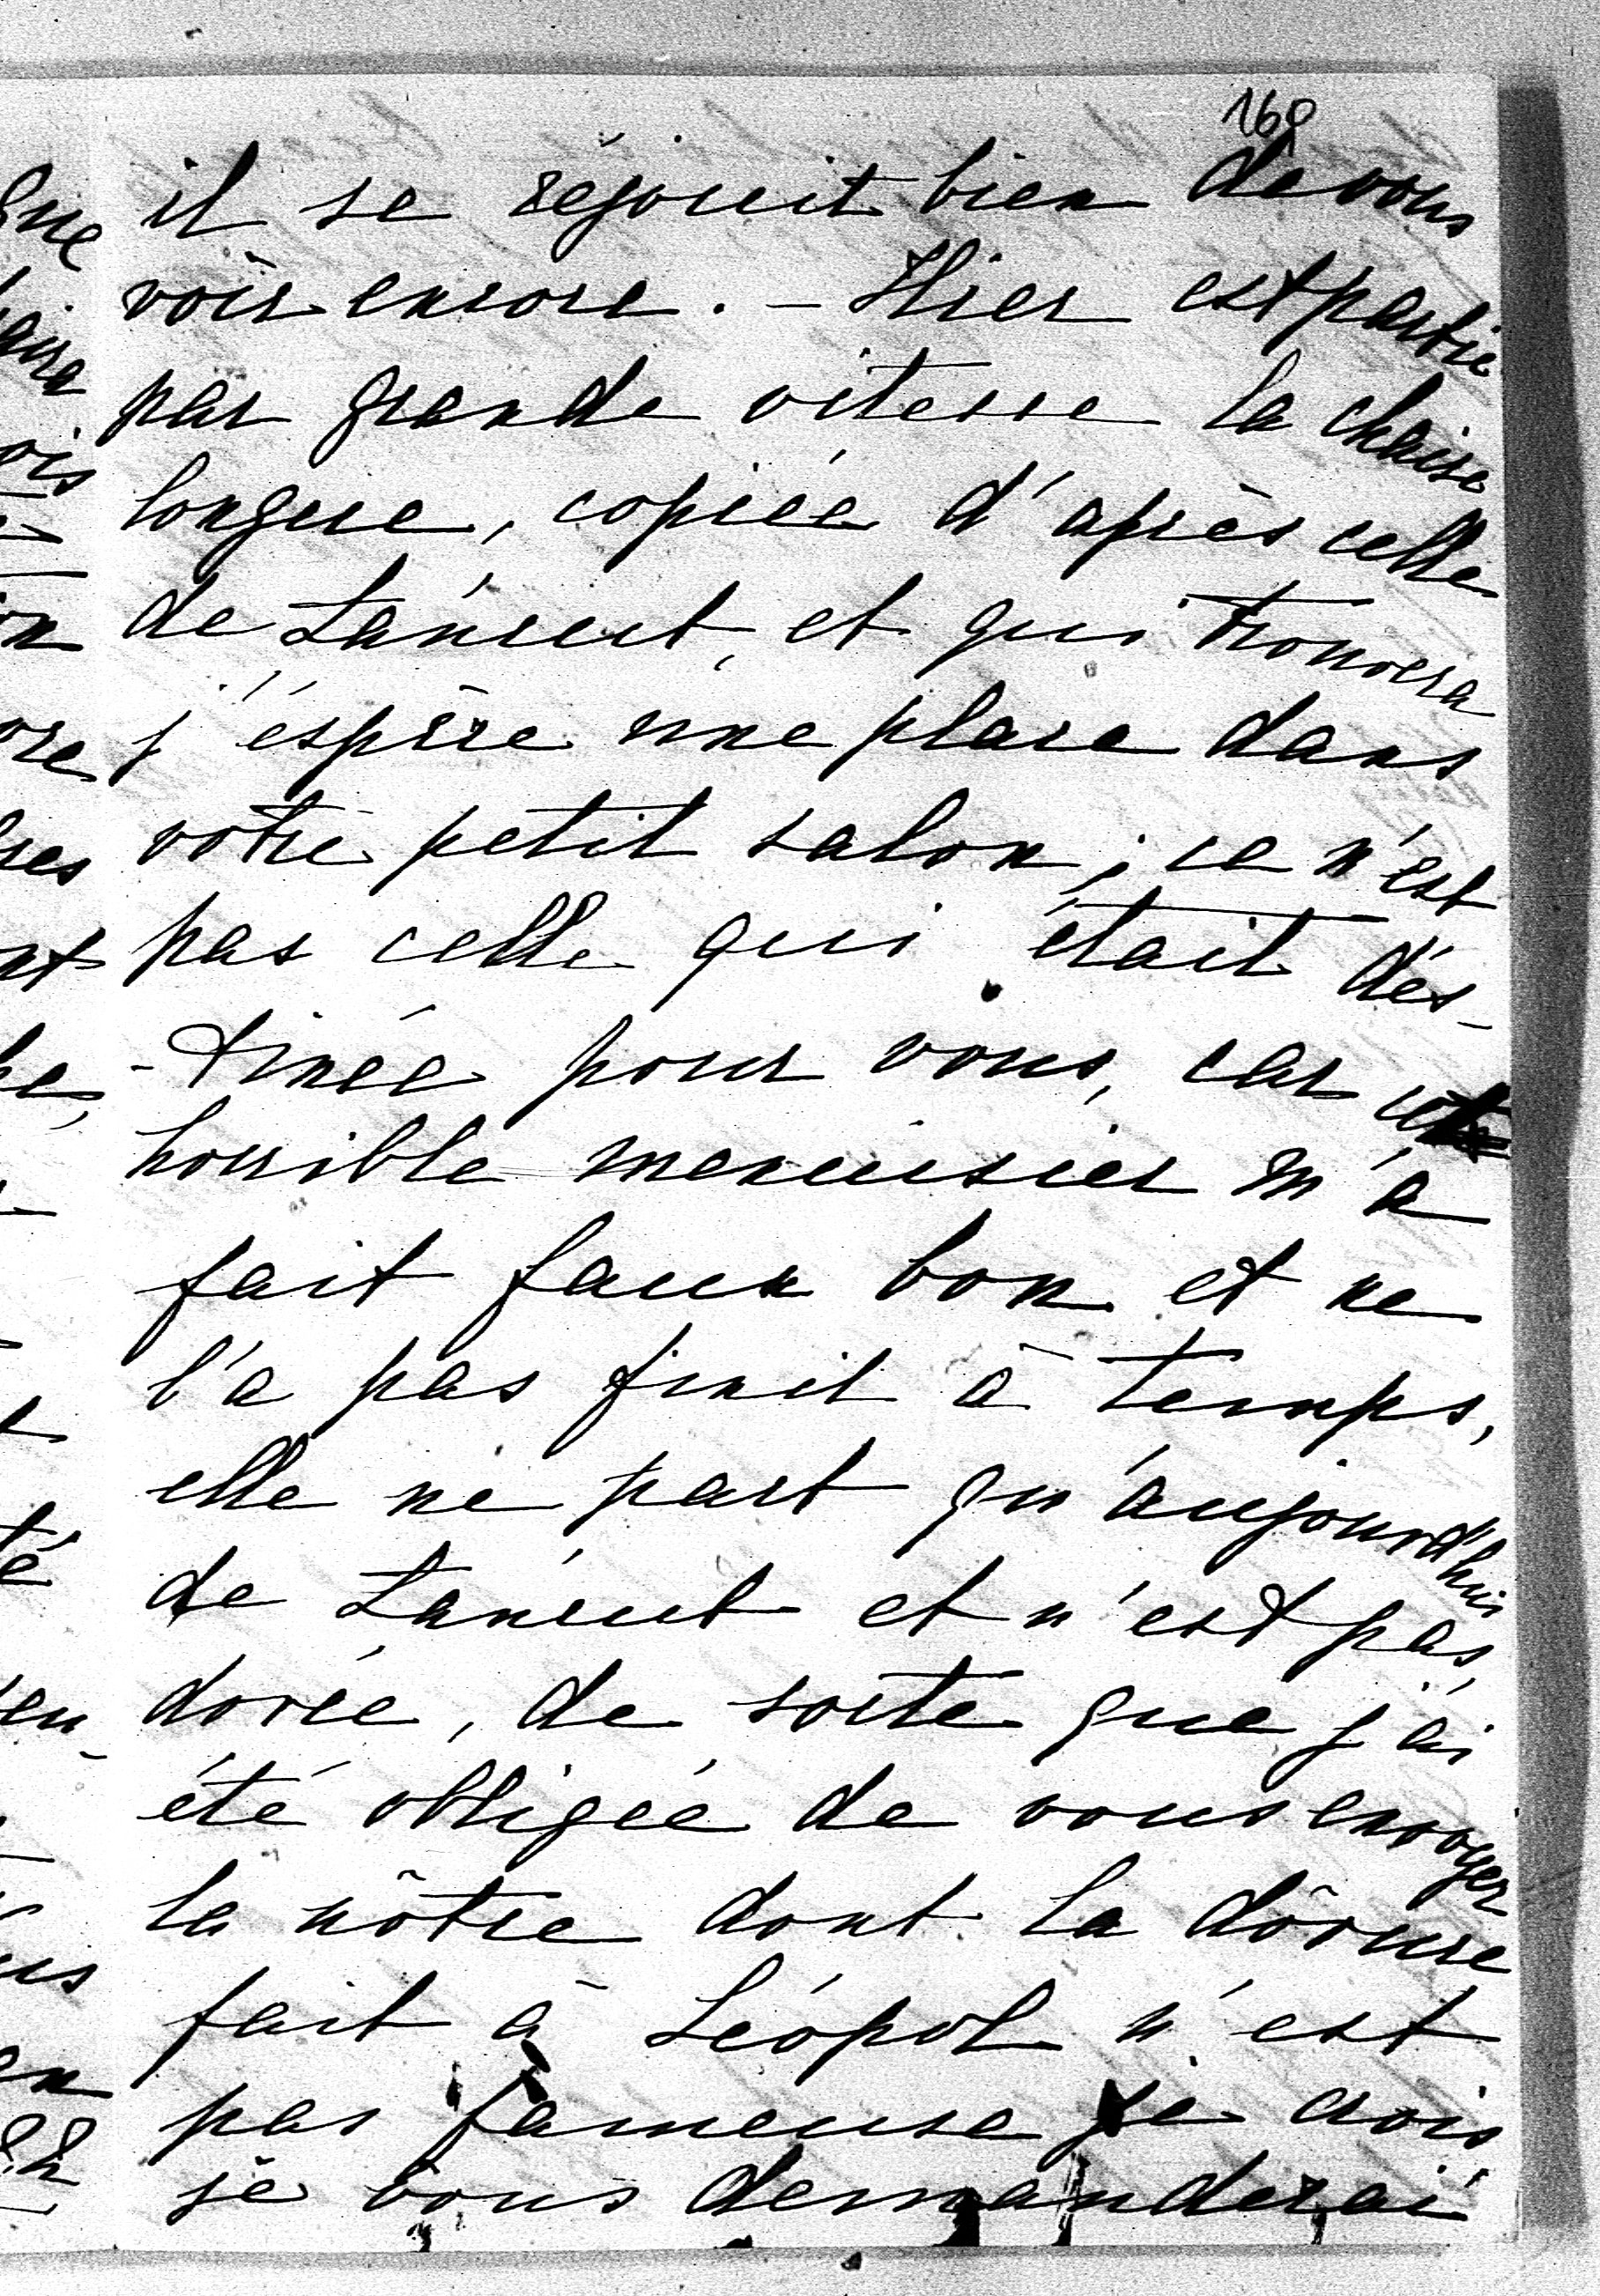 160
il se réjouit bien de vous
voir encore. – Hier est partie
par grande vitesse la chaise
longue, copiée d'après celle
de Łańcut, et qui trouvera
j'éspère une place dans
votre petit salon; ce n'est
pas celle qui était dés-
-tinée pour vous, car cet
horrible menuisier m'a
fait faux bon et ne
l'a pas finit à temps,
elle ne part qu'aujourd'hui
de Łańcut et n'est pas
dorée, de sorte que j'ai
été obligée de vous envoyer
la nôtre dont la dôrure
fait à Léopol n'est
pas fameuse je crois
je vous demanderai